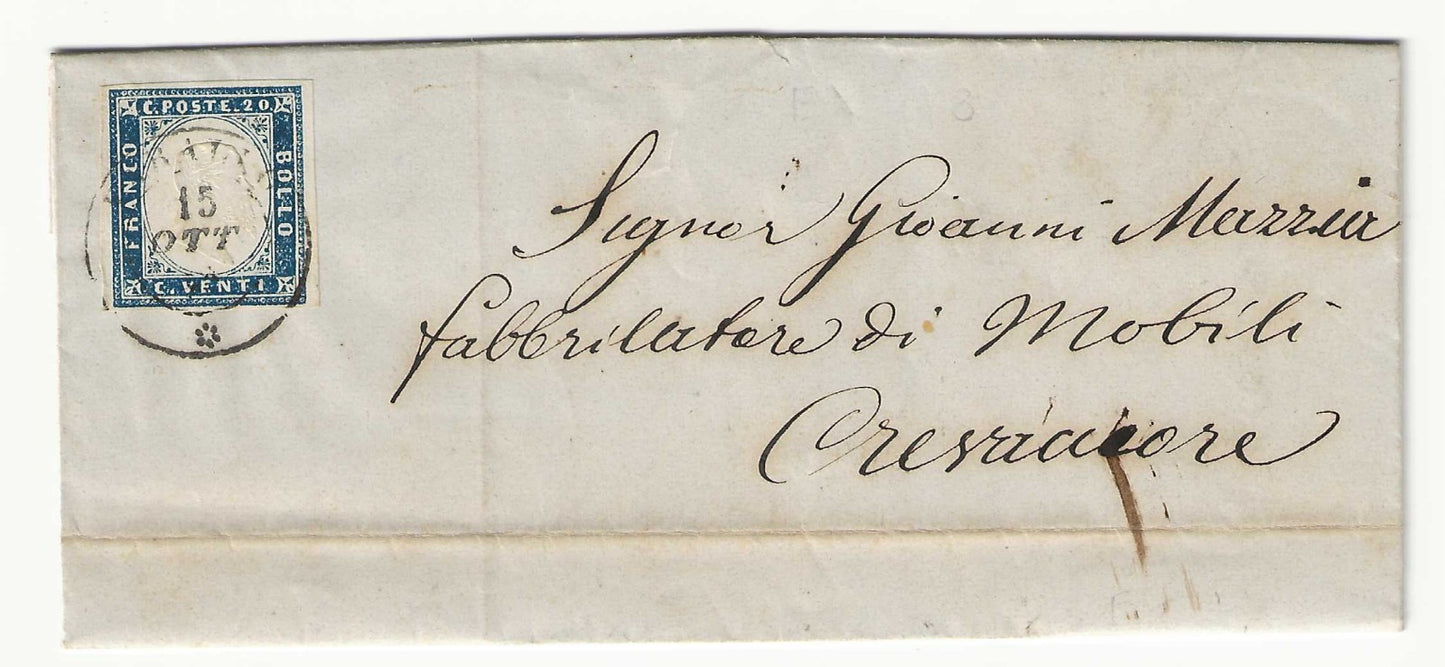 C. POSTE. 20
FRANCO
BOLLO
C. VENTI
15
OTT
Signor Giovanni Mazzia
fabbricatore di Mobili
Crevacuore